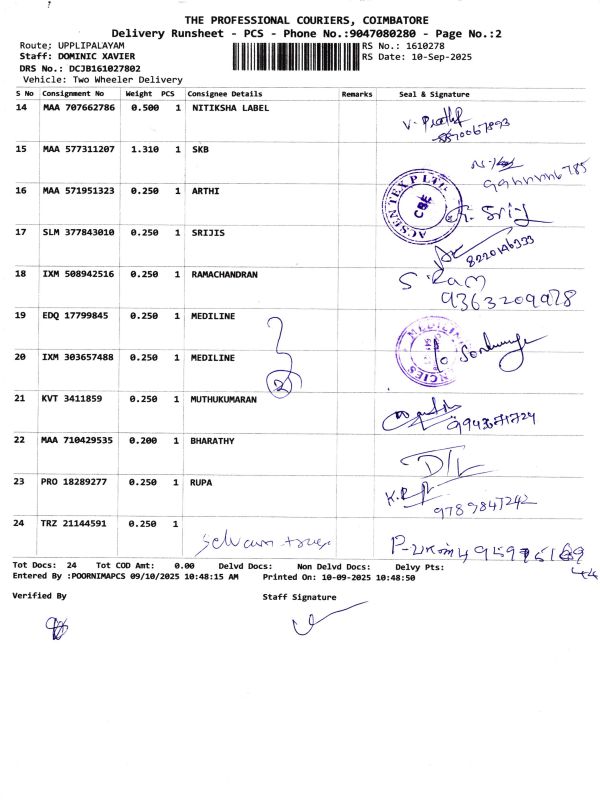 THE PROFESSIONAL COURIERS, COIMBATORE
Delivery Runsheet - PCS - Phone No.:9047080280 - Page No.:2
Route; UPPLIPALAYAM RS No.: 1610278
Staff: DOMINIC XAVIER RS Date: 10-Sep-2025
DRS No.: DCJB161027802
Vehicle: Two Wheeler Delivery
S No Consignment No Weight PCS Consignee Details Remarks Seal & Signature
14 MAA 707662786 0.500 1 NITIKSHA LABEL
15 MAA 577311207 1.310 1 SKB
16 MAA 571951323 0.250 1 ARTHI
ACSEN TEX P LTD
CBE
17 SLM 377843010 0.250 1 SRIJIS
8220146333
18 IXM 508942516 0.250 1 RAMACHANDRAN
S Ram
9363209978
19 EDQ 17799845 0.250 1 MEDILINE
20 IXM 303657488 0.250 1 MEDILINE
2
21 KVT 3411859 0.250 1 MUTHUKUMARAN
22 MAA 710429535 0.200 1 BHARATHY
23 PRO 18289277 0.250 1 RUPA
9789847242
24 TRZ 21144591 0.250 1
Tot Docs: 24 Tot COD Amt: 0.00 Delvd Docs: Non Delvd Docs: Delvy Pts:
Entered By :POORNIMAPCS 09/10/2025 10:48:15 AM Printed On: 10-09-2025 10:48:50
Verified By Staff Signature